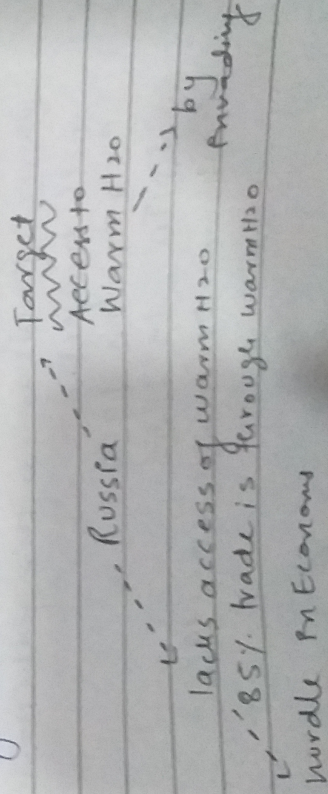 Target
Access to
Warm H20
Russia
by
invading
lacks access of warm H20
85% trade is through warm H20
hurdle in Economs